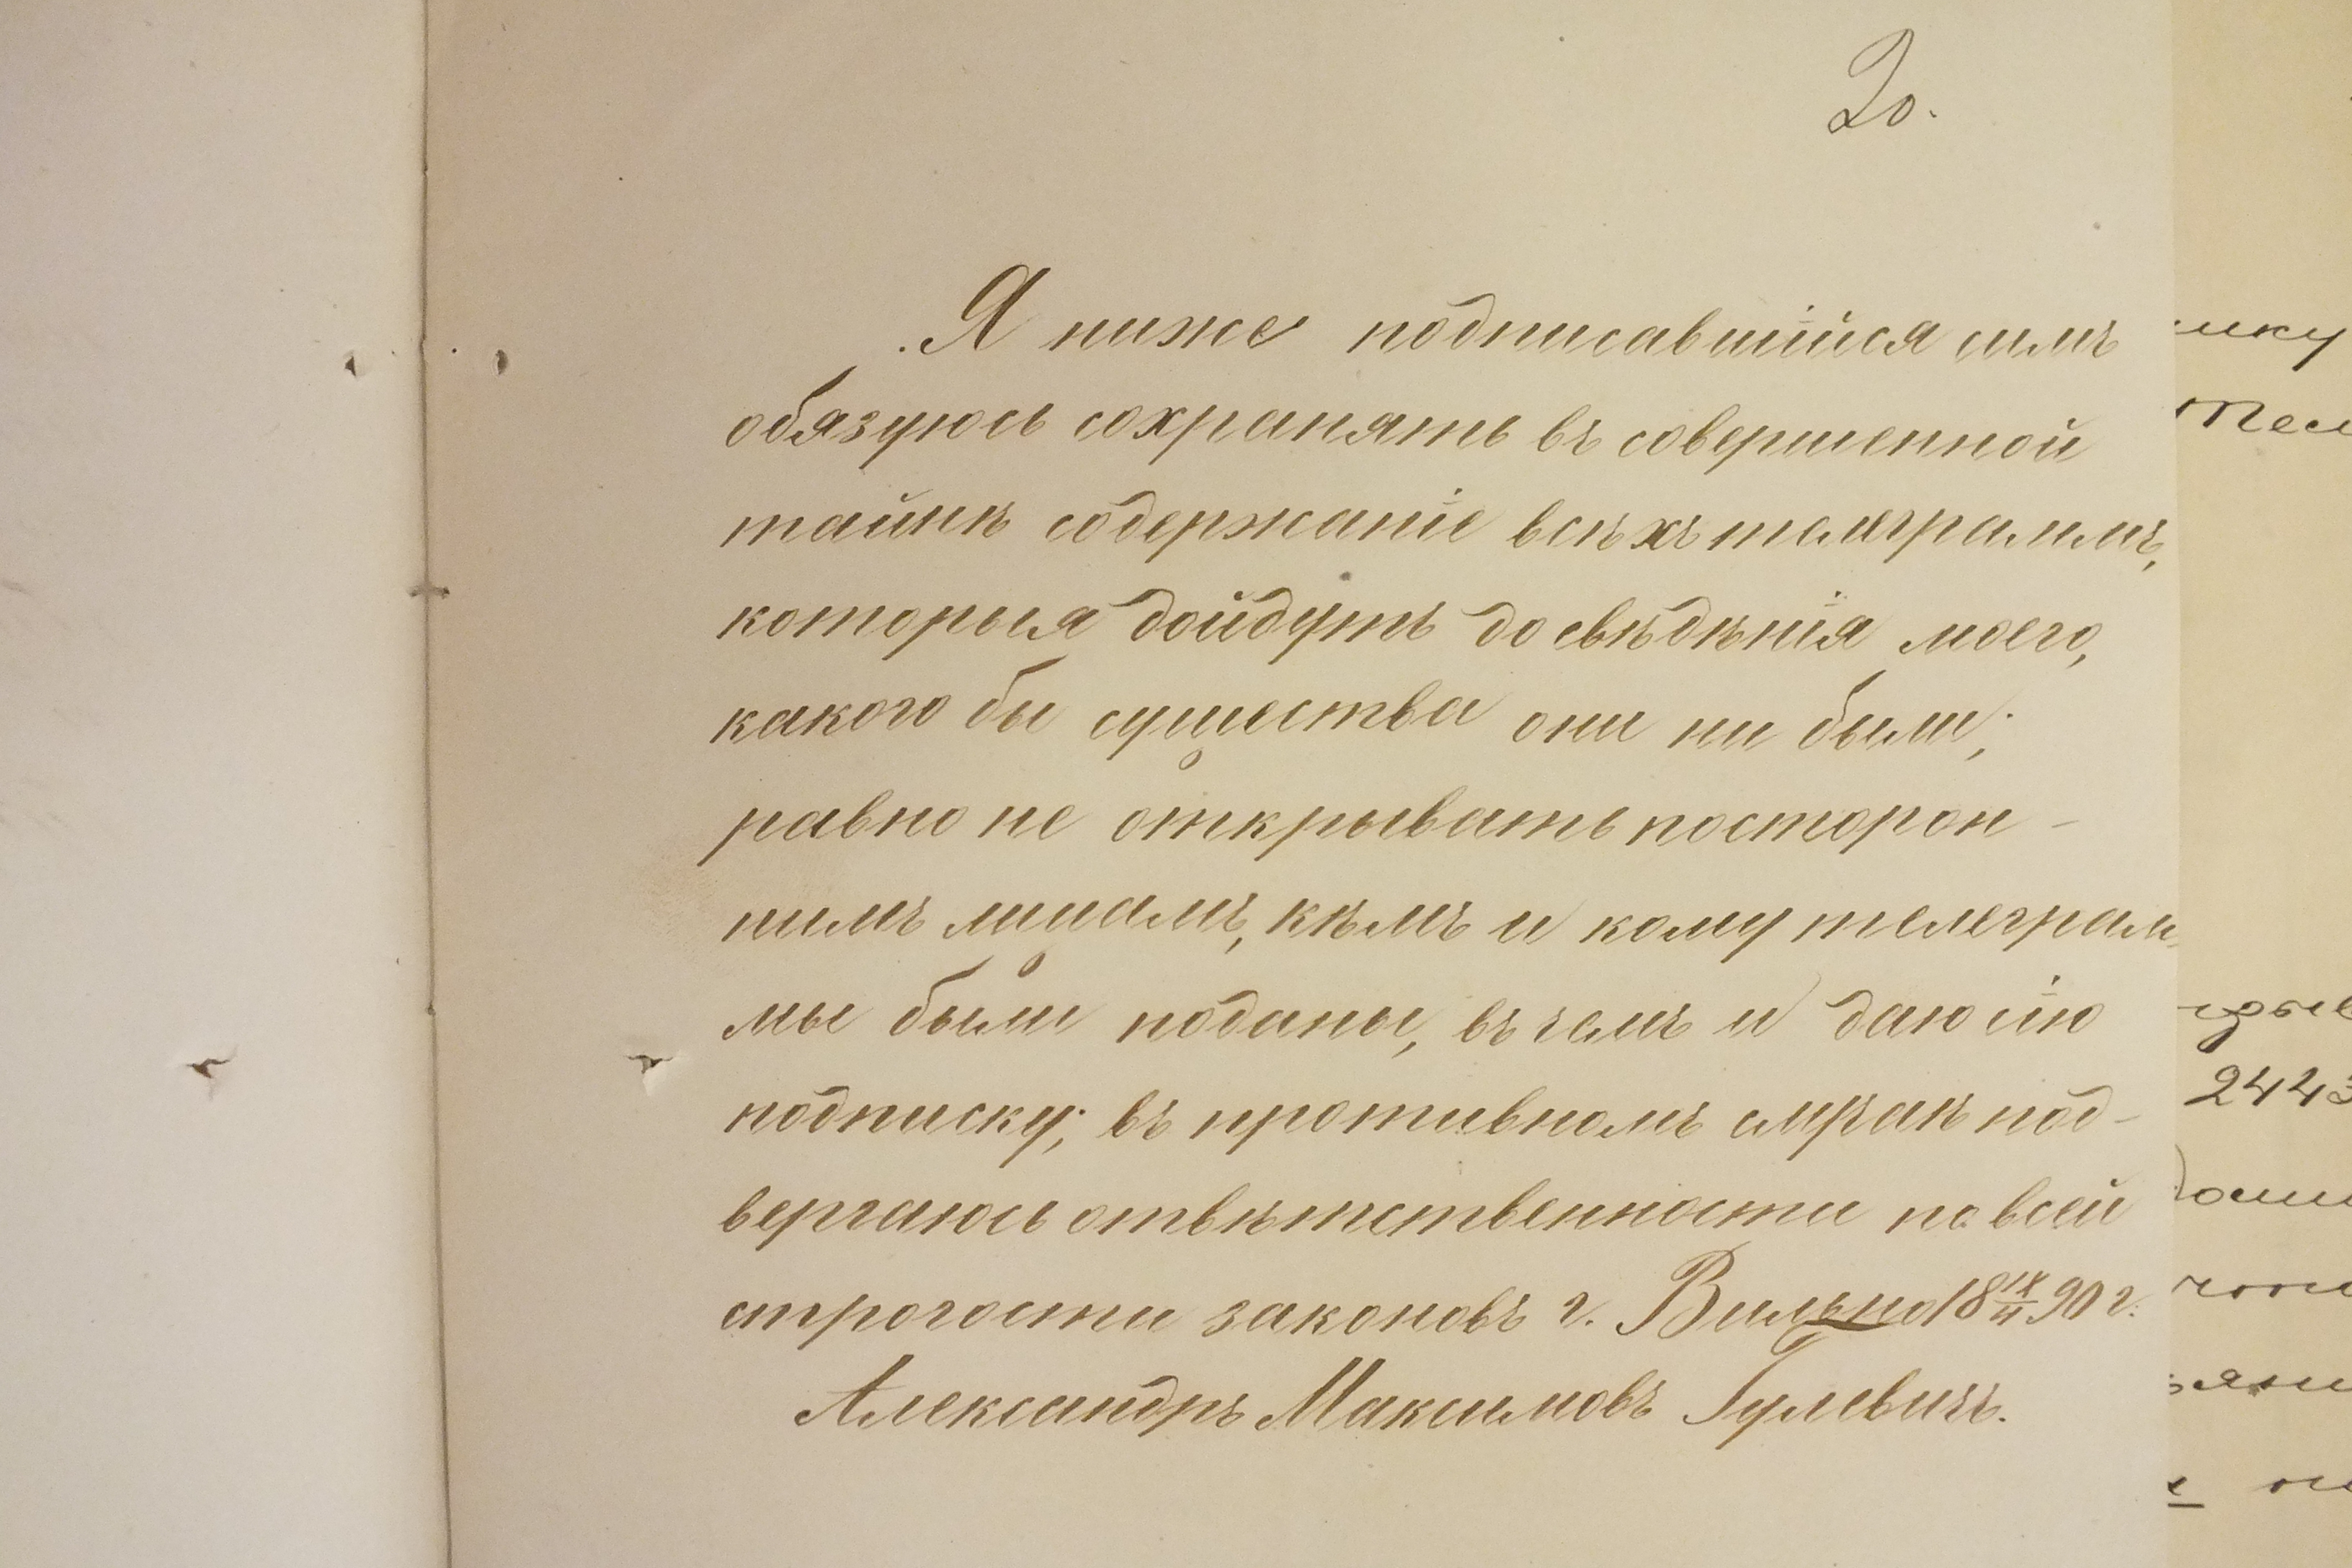 20.
Я ниже подписавшійся симъ
обязуюсь сохранять въ совершенной
тайнѣ содержаніе всѣхъ телеграммъ,
которыя дойдутъ до свѣдѣнія моего,
какого бы существа они ни были;
равно не открывать посторон-
нимъ лицамъ, кѣмъ и кому телеграм-
мы были поданы, въ чемъ и даю сію
подписку; въ противномъ случаѣ под-
вергаюсь отвѣтственности по всей
строгости законовъ г. Вильно 18 IX/11 90 г.
Александръ Максимовъ Гулевичъ.
2443